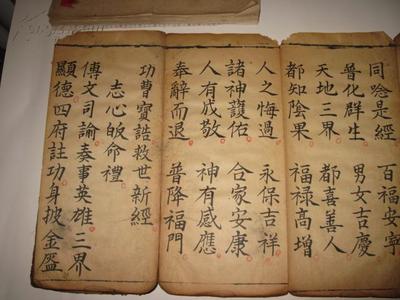 同唸是經 百福安寧
普化群生 男女吉慶
天地三界 都喜善人
都知陰果 福禄高增
人之悔過 永保吉祥
諸神護佑 合家安康
人有成敬 神有感應
奉辭而退 普降福門
功曹寳誥救世新經
志心皈命禮
傳文司諭奏事英雄三界
顯德四府註功身披金盔